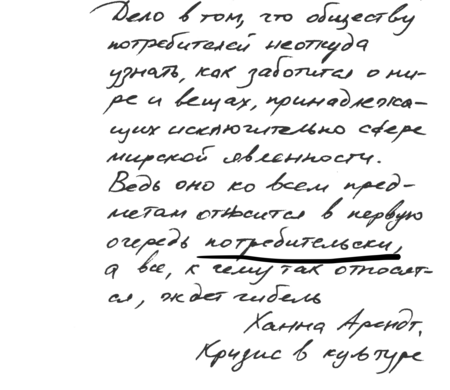 Дело в том, что обществу
потребителей неоткуда
узнать, как заботится о ми-
ре и вещах, принадлежа-
щих исключительно сфере
мирской явленности.
Ведь оно ко всем пред-
метам относится в первую
очередь потребительски,
а все, к чему так относят-
ся, ждет гибель
Ханна Арендт.
Кризис в культуре